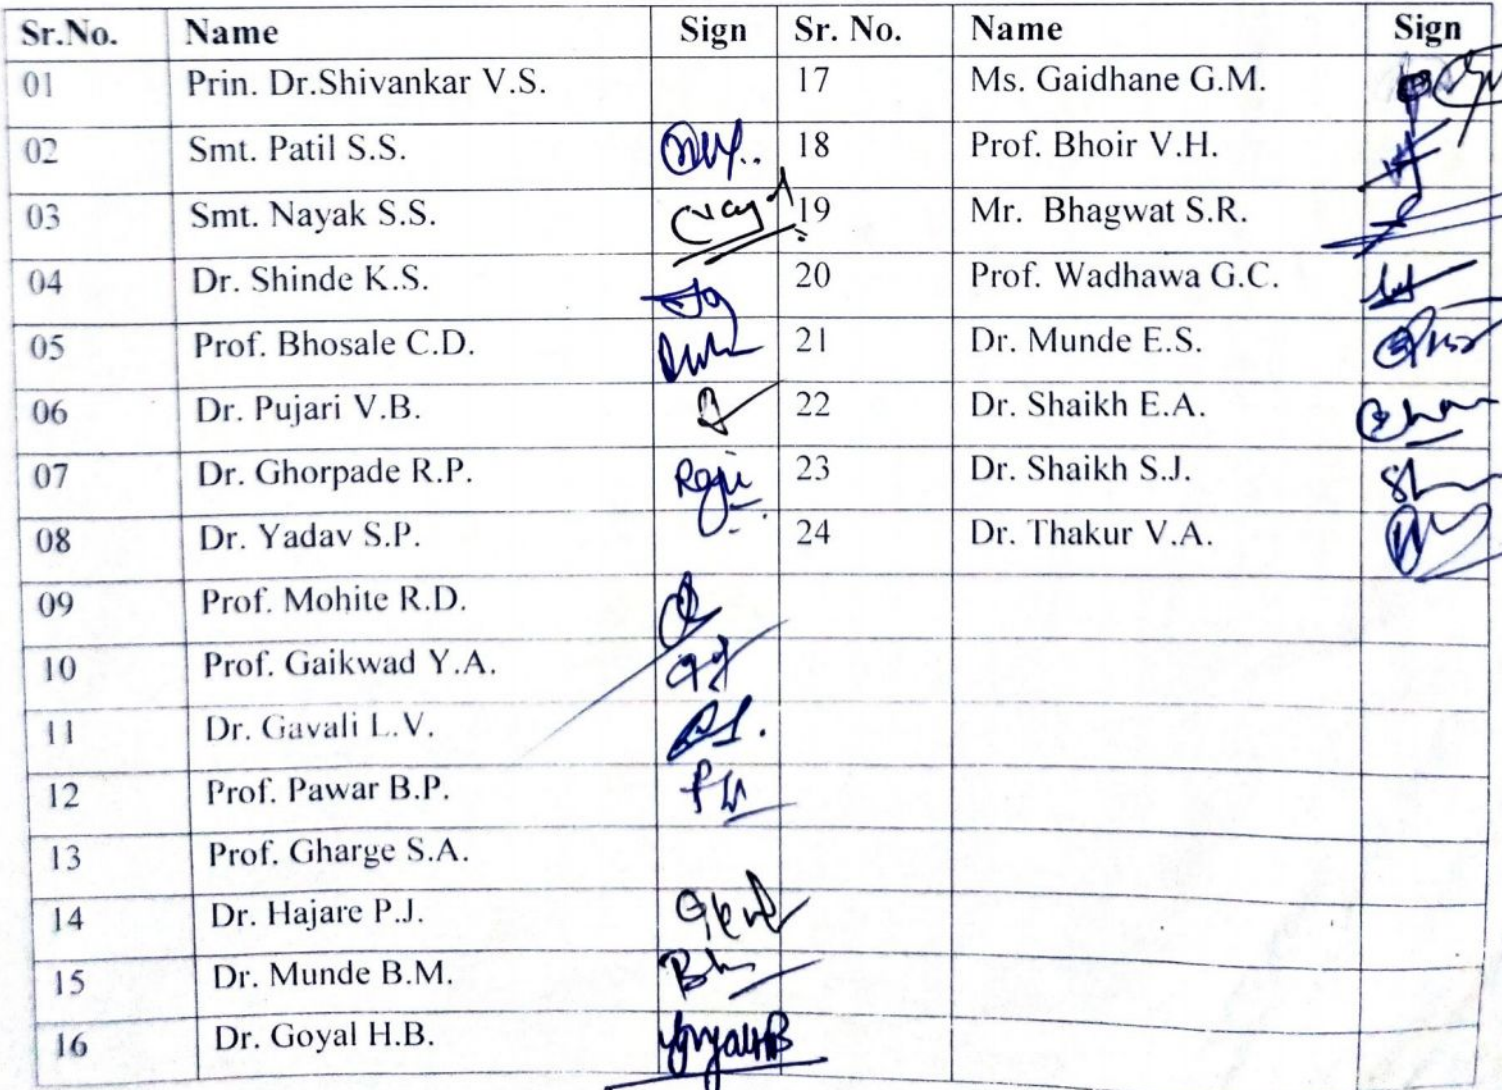 Sr.No. Name Sign Sr. No. Name Sign
01 Prin. Dr.Shivankar V.S. 17 Ms. Gaidhane G.M.
02 Smt. Patil S.S. 18 Prof. Bhoir V.H.
03 Smt. Nayak S.S. 19 Mr. Bhagwat S.R.
04 Dr. Shinde K.S. 20 Prof. Wadhawa G.C.
05 Prof. Bhosale C.D. 21 Dr. Munde E.S.
06 Dr. Pujari V.B. 22 Dr. Shaikh E.A.
07 Dr. Ghorpade R.P. 23 Dr. Shaikh S.J.
08 Dr. Yadav S.P. 24 Dr. Thakur V.A.
09 Prof. Mohite R.D.
10 Prof. Gaikwad Y.A.
11 Dr. Gavali L.V.
12 Prof. Pawar B.P.
13 Prof. Gharge S.A.
14 Dr. Hajare P.J.
15 Dr. Munde B.M.
16 Dr. Goyal H.B.